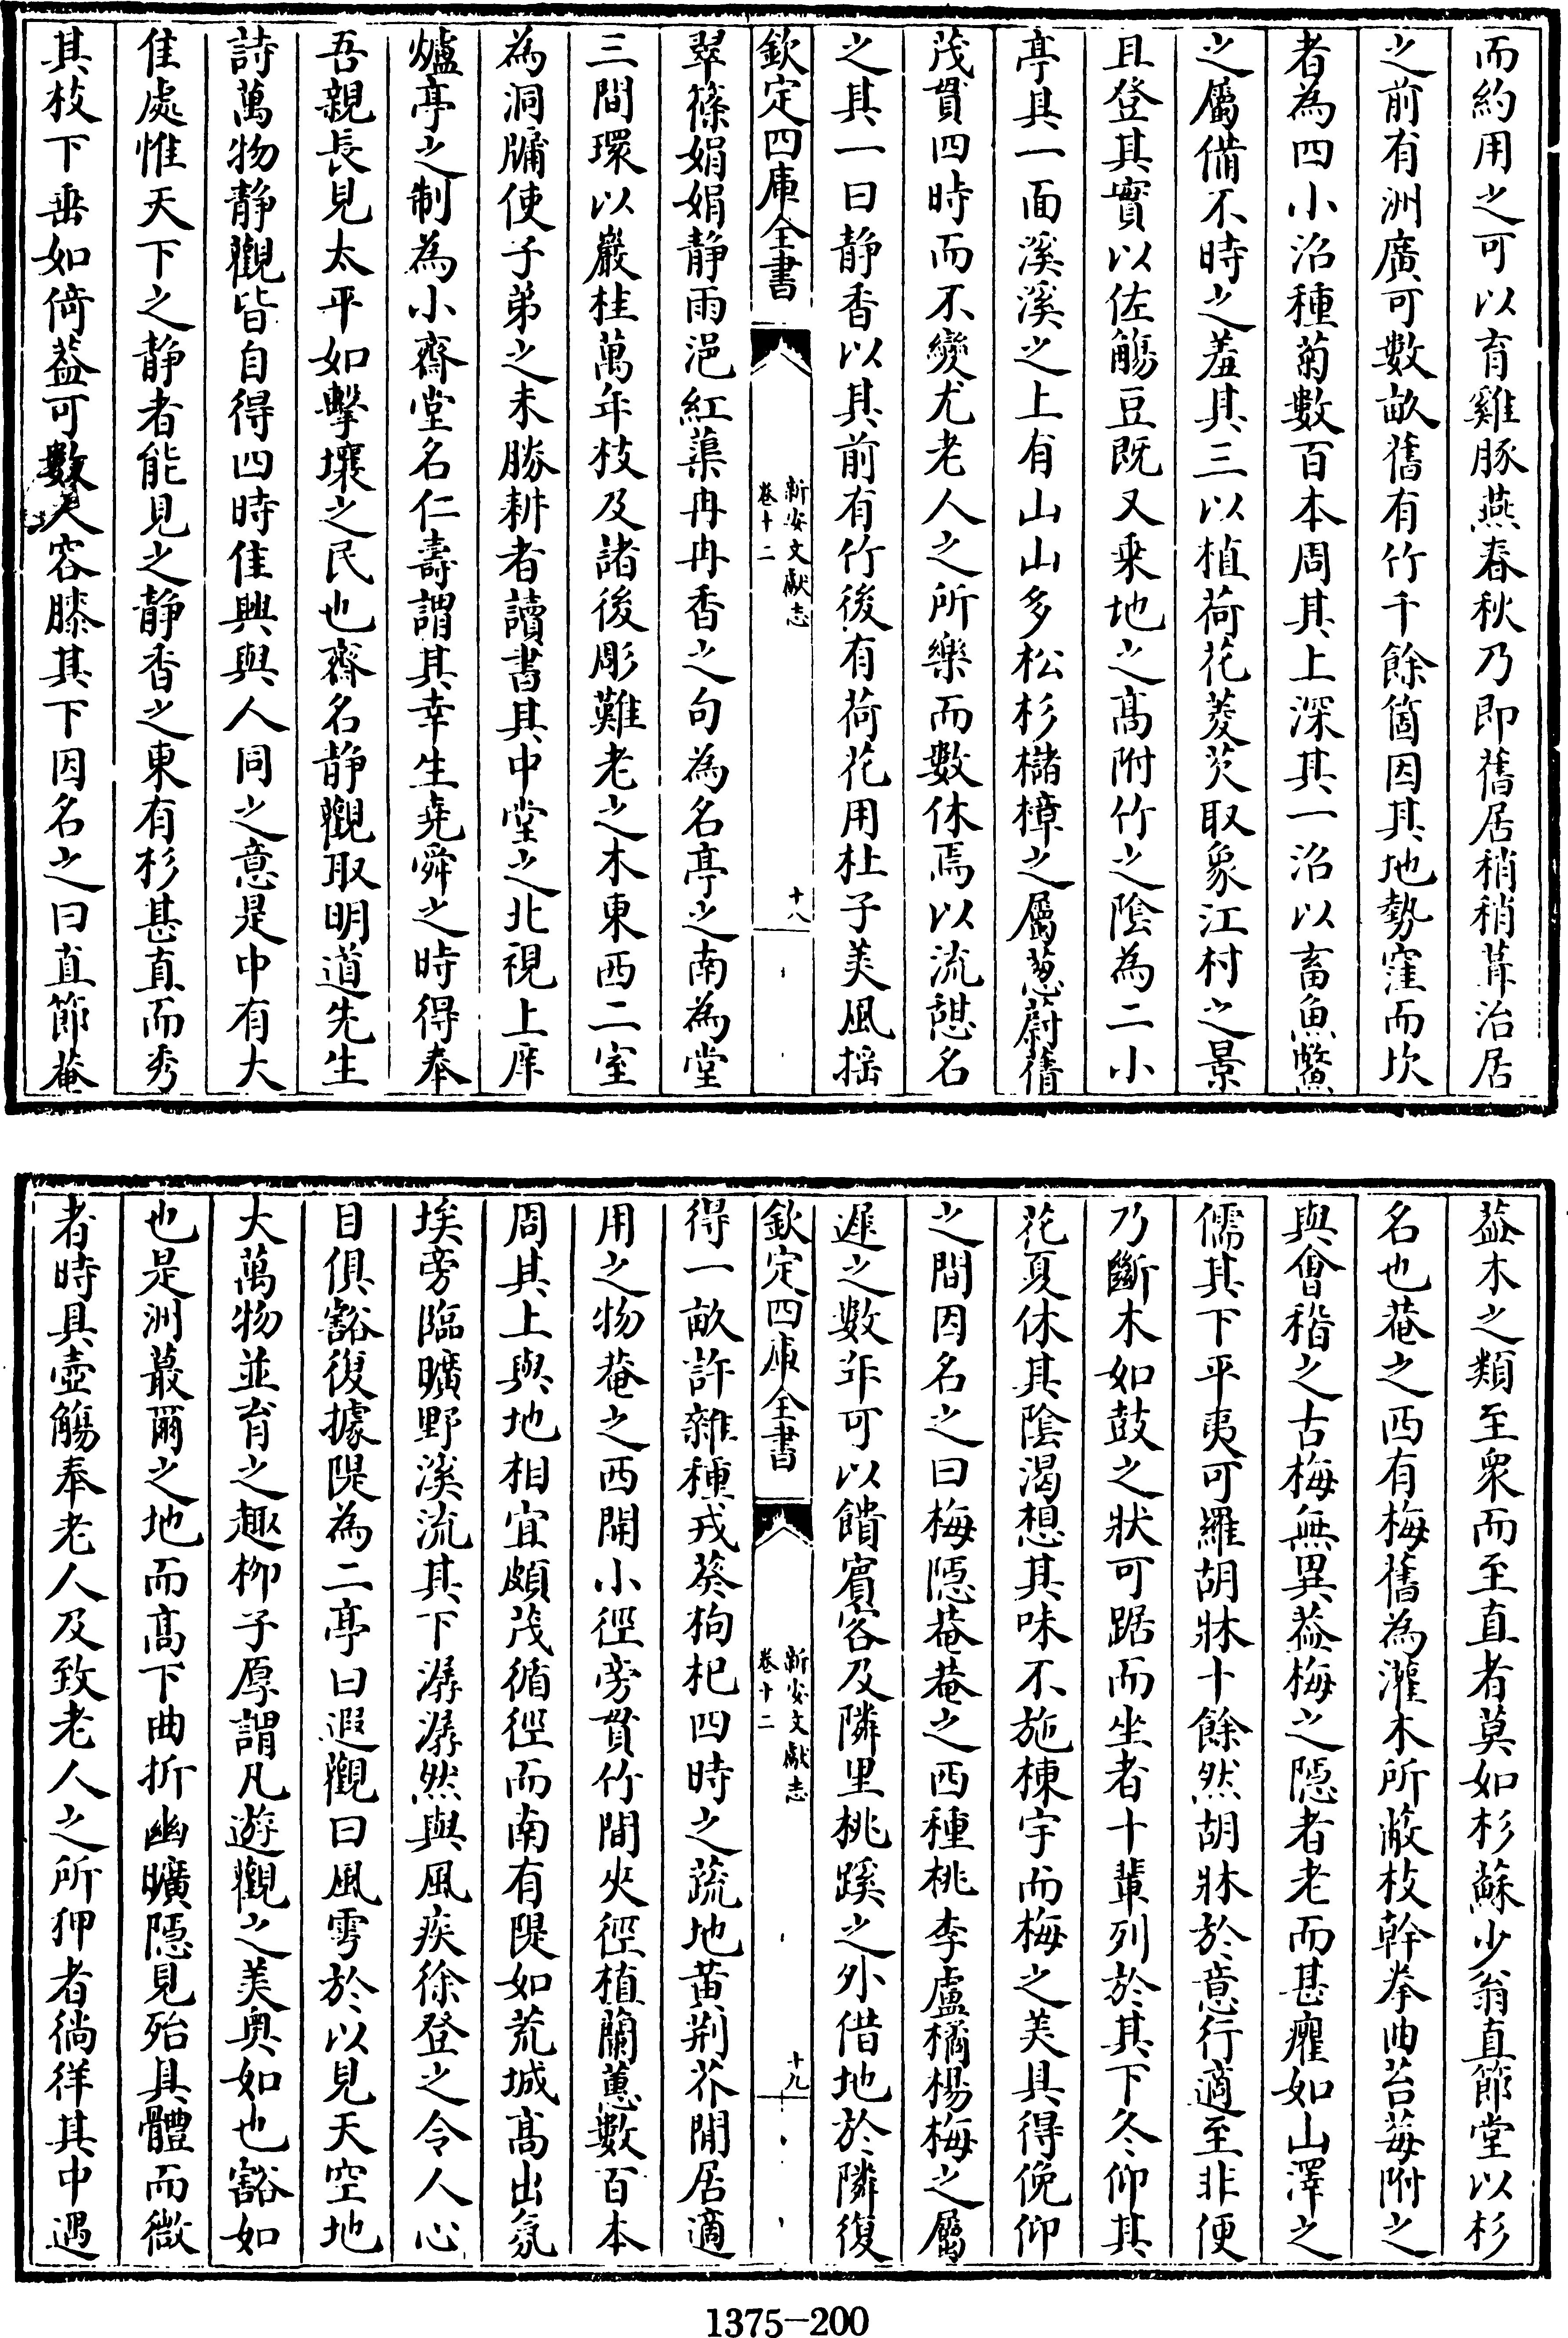 而約用之可以育雞豚燕春秋乃即舊居稍稍葺治居
之前有洲廣可數畝舊有竹千餘箇因其地勢窪而坎
者為四小沼種菊數百本周其上深其一沼以畜魚鱉
之屬備不時之羞其三以植荷花菱芡取象江村之景
且登其實以佐觴豆既又乗地之髙附竹之陰為二小
亭具一面溪溪之上有山山多松杉櫧樟之屬葱蔚薈
茂貫四時而不變尤老人之所樂而數休焉以流憩名
之其一曰静香以其前有竹後有荷花用杜子美風揺
欽定四庫全書
新安文獻志
卷十二
十八
翠篠娟娟静雨浥紅蕖冉冉香之句為名亭之南為堂
三間環以巖桂萬年枝及諸後彫難老之木東西二室
為洞牖使子弟之未勝耕者讀書其中堂之北視上庠
爐亭之制為小齋堂名仁壽謂其幸生堯舜之時得奉
吾親長見太平如擊壤之民也齋名静觀取明道先生
詩萬物静觀皆自得四時佳興與人同之意是中有大
佳處惟天下之静者能見之静香之東有杉甚直而秀
其枝下垂如倚葢可數人容膝其下因名之曰直節菴
葢木之類至衆而至直者莫如杉蘇少翁直節堂以杉
名也菴之西有梅舊為灌木所蔽枝幹拳曲苔莓附之
與會稽之古梅無異葢梅之隠者老而甚癯如山澤之
儒其下平夷可羅胡牀十餘然胡牀於意行適至非便
乃斷木如鼓之狀可踞而坐者十輩列於其下冬仰其
花夏休其陰渴想其味不施棟宇而梅之美具得俛仰
之間因名之曰梅隠菴菴之西種桃李盧橘楊梅之屬
遲之數年可以饋賓客及隣里桃蹊之外借地於隣復
欽定四庫全書
新安文獻志
卷十二
十九
得一畝許雜種戎葵枸杞四時之蔬地黄荆芥閒居適
用之物菴之西開小徑旁貫竹間夾徑植蘭蕙數百本
周其上與地相宜頗茂循徑而南有隄如荒城髙出氛
埃旁臨曠野溪流其下潺潺然與風疾徐登之令人心
目俱豁復據隄為二亭曰遐觀曰風雩於以見天空地
大萬物並育之趣柳子厚謂凡遊觀之美奥如也豁如
也是洲蕞爾之地而髙下曲折幽曠隠見殆具體而㣲
者時具壺觴奉老人及致老人之所狎者徜徉其中遇
1375-200